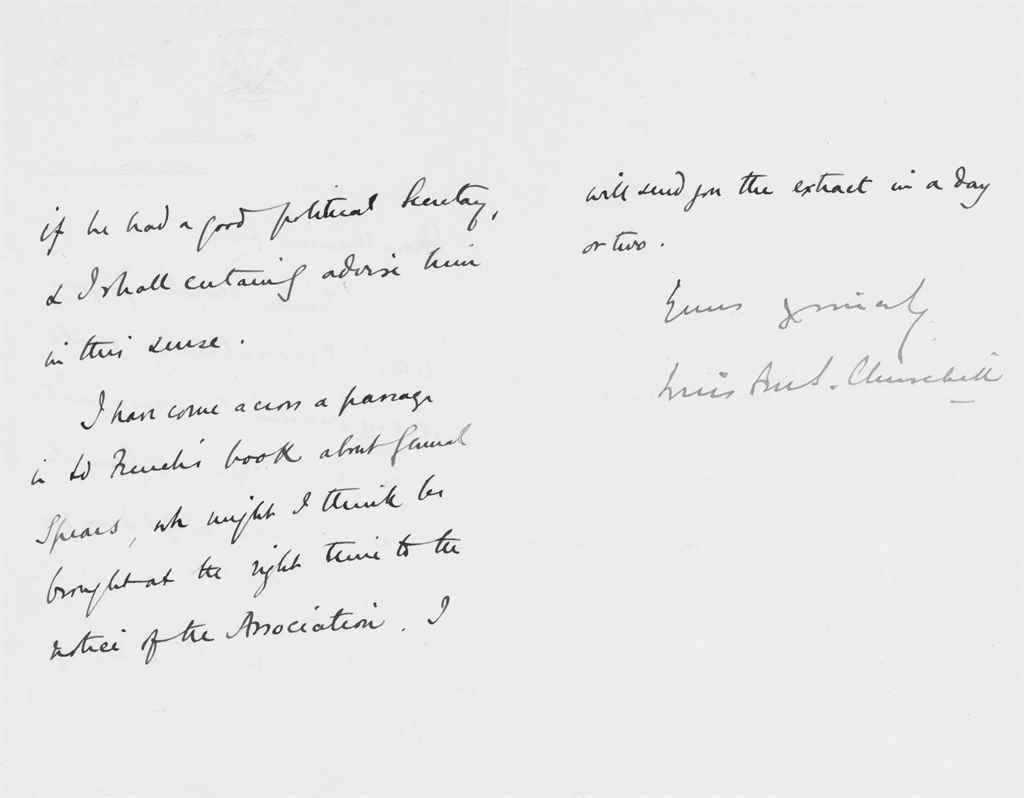 if he had a good political Secretary,
& I shall certainly advise him
in this sense.
I have come across a passage
in Ld French's book about General
Spears, wh might I think be
brought at the right time to the
notice of the Association. I
will send you the extract in a day
or two.
Yours sincerely
Winston S. Churchill